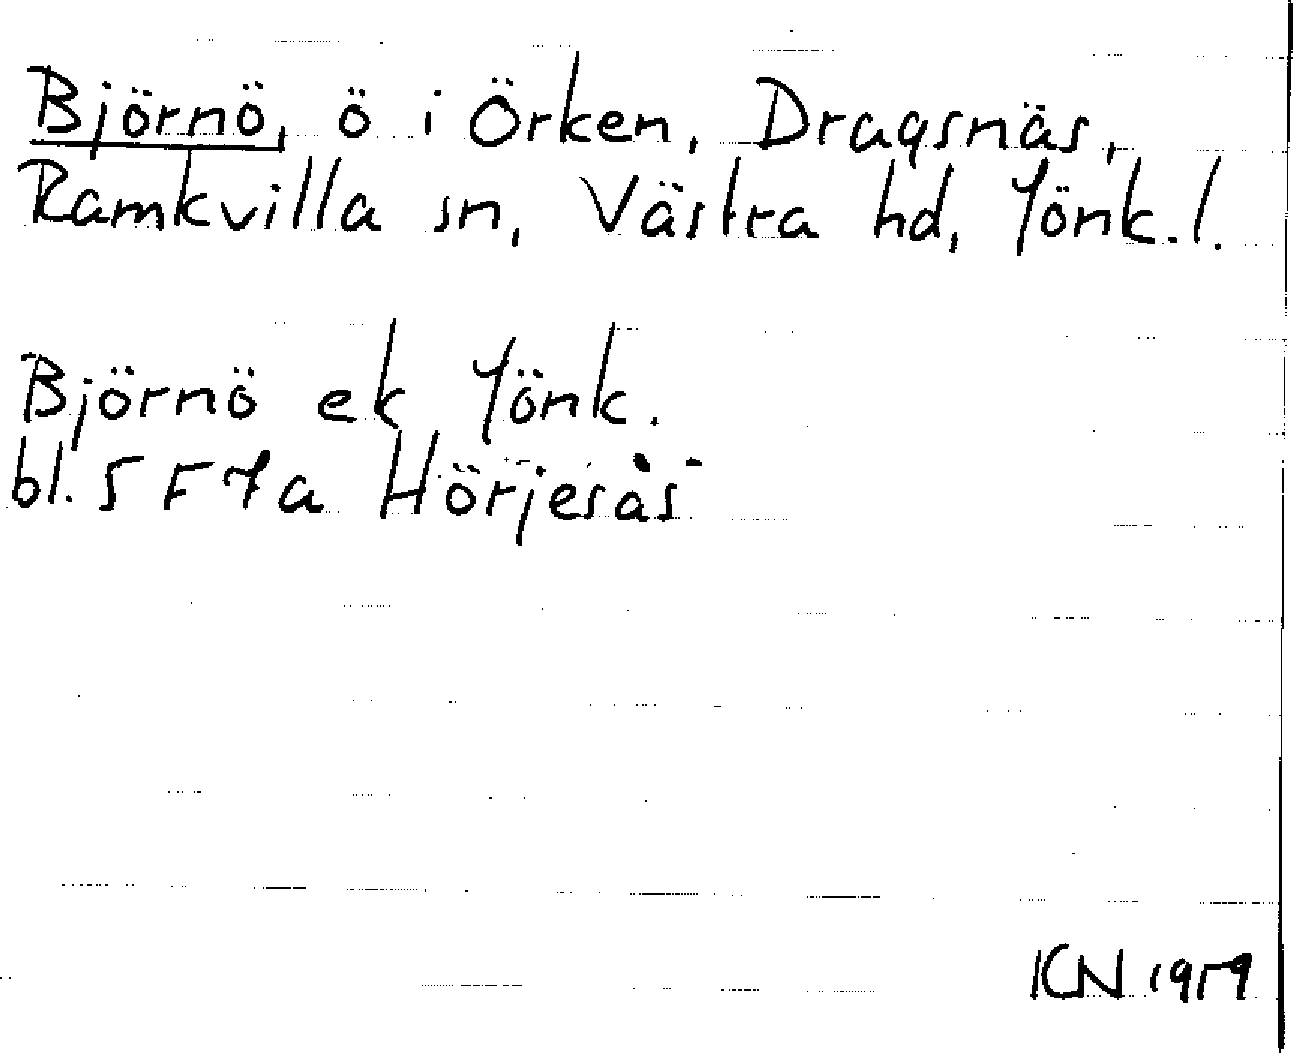 Björnö, ö i Örken, Dragsnäs,
Ramkvilla sn, Västra hd, Jönk.l.
Björnö ek Jönk.
bl. 5 F 7a Hörjesås
KN 1959